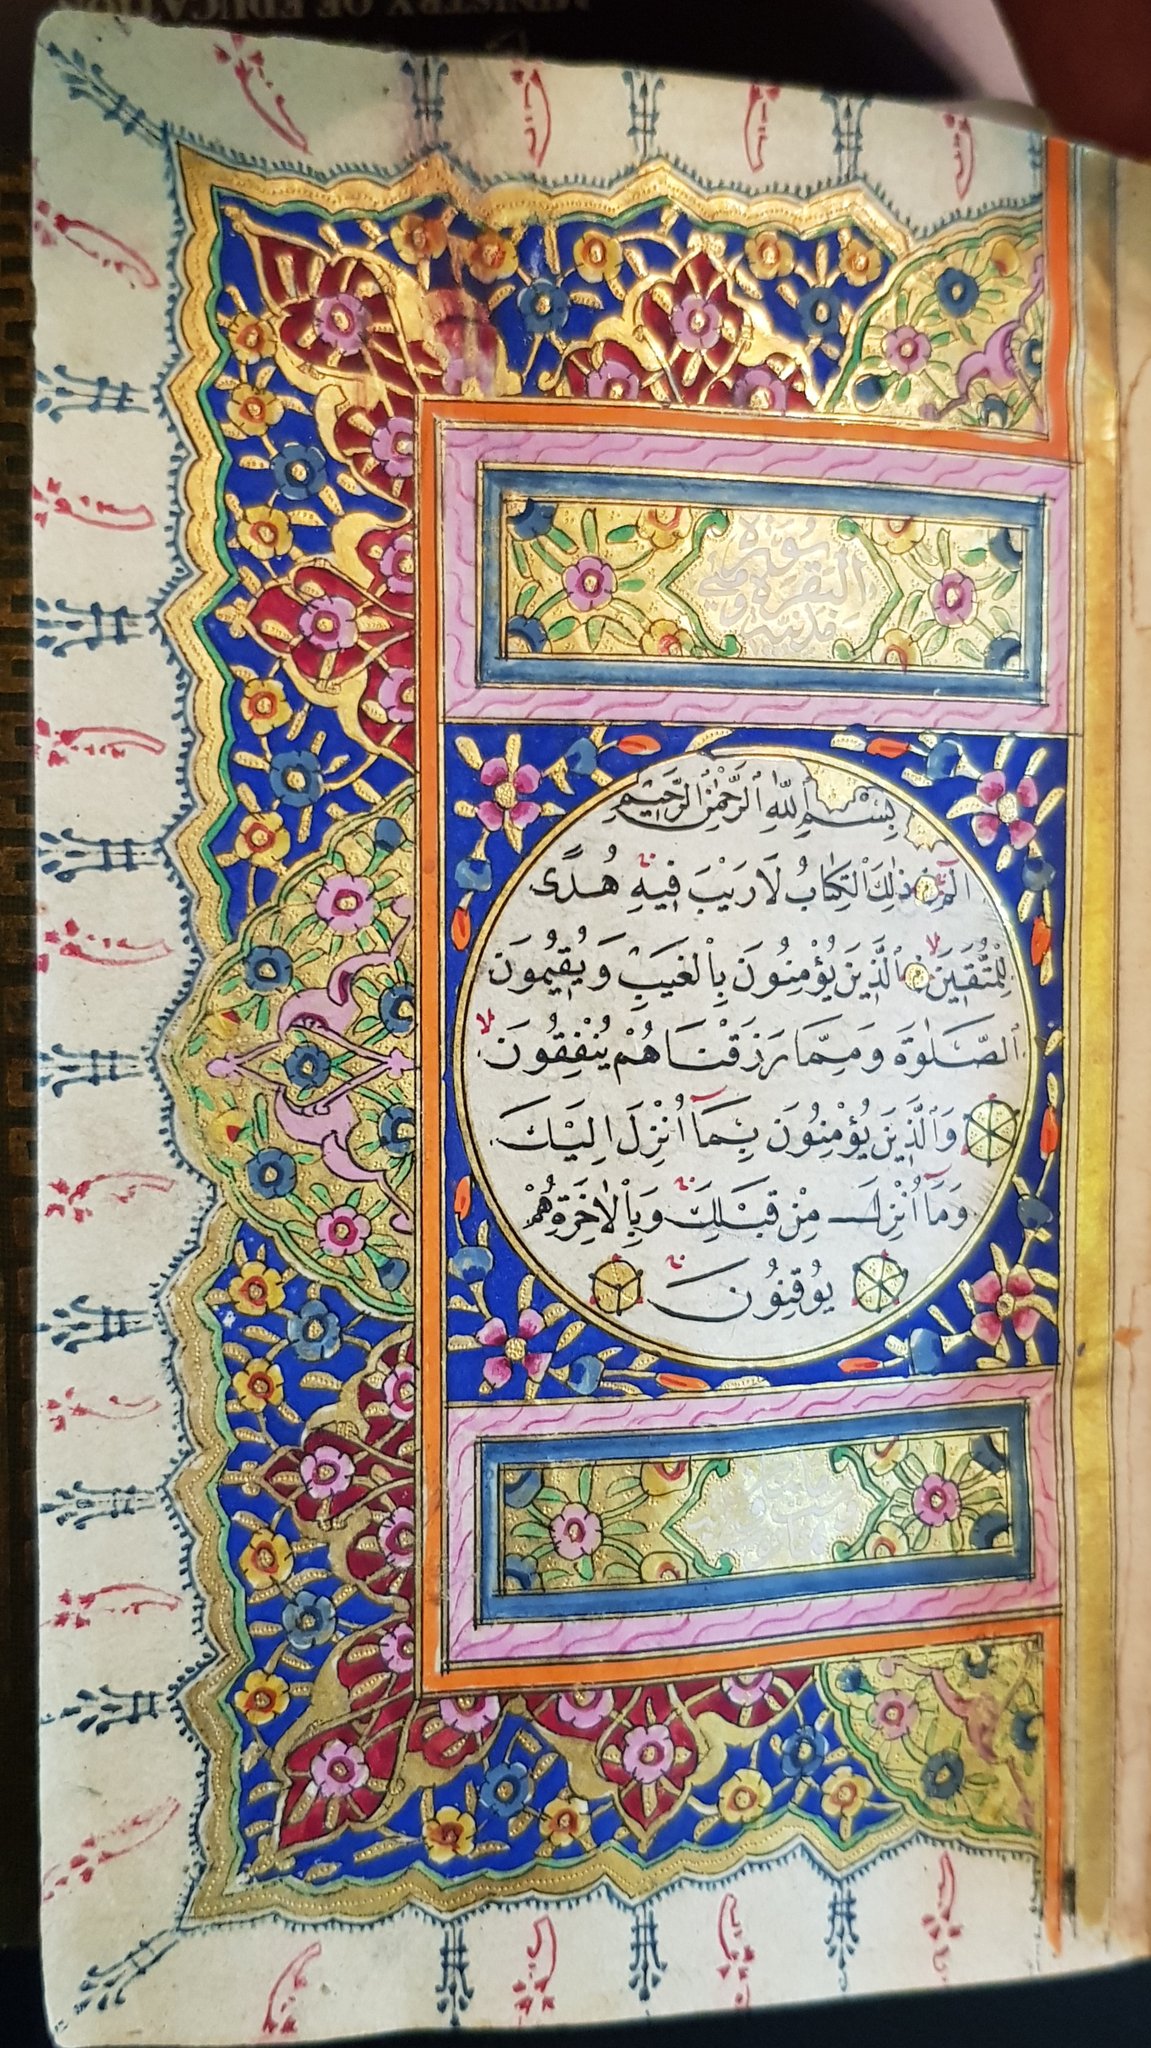 MINISTRY OF EDUCATION
سورة
البقرة وهي
مدنية
بِسْمِ ٱللّٰهِ ٱلرَّحْمٰنِ ٱلرَّحٖيمِ
الٓمٓ ذٰلِكَ الْكِتَابُ لَا رَيْبَ فٖيهِ هُدًى
لِلْمُتَّقٖينَ ٱلَّذٖينَ يُؤْمِنُونَ بِالْغَيْبِ وَيُقٖيمُونَ
ٱلصَّلٰوةَ وَمِمَّا رَزَقْنَاهُمْ يُنْفِقُونَ
وَٱلَّذٖينَ يُؤْمِنُونَ بِمَٓا اُنْزِلَ اِلَيْكَ
وَمَٓا اُنْزِلَ مِنْ قَبْلِكَ وَبِالْاٰخِرَةِ هُمْ
يُوقِنُونَ